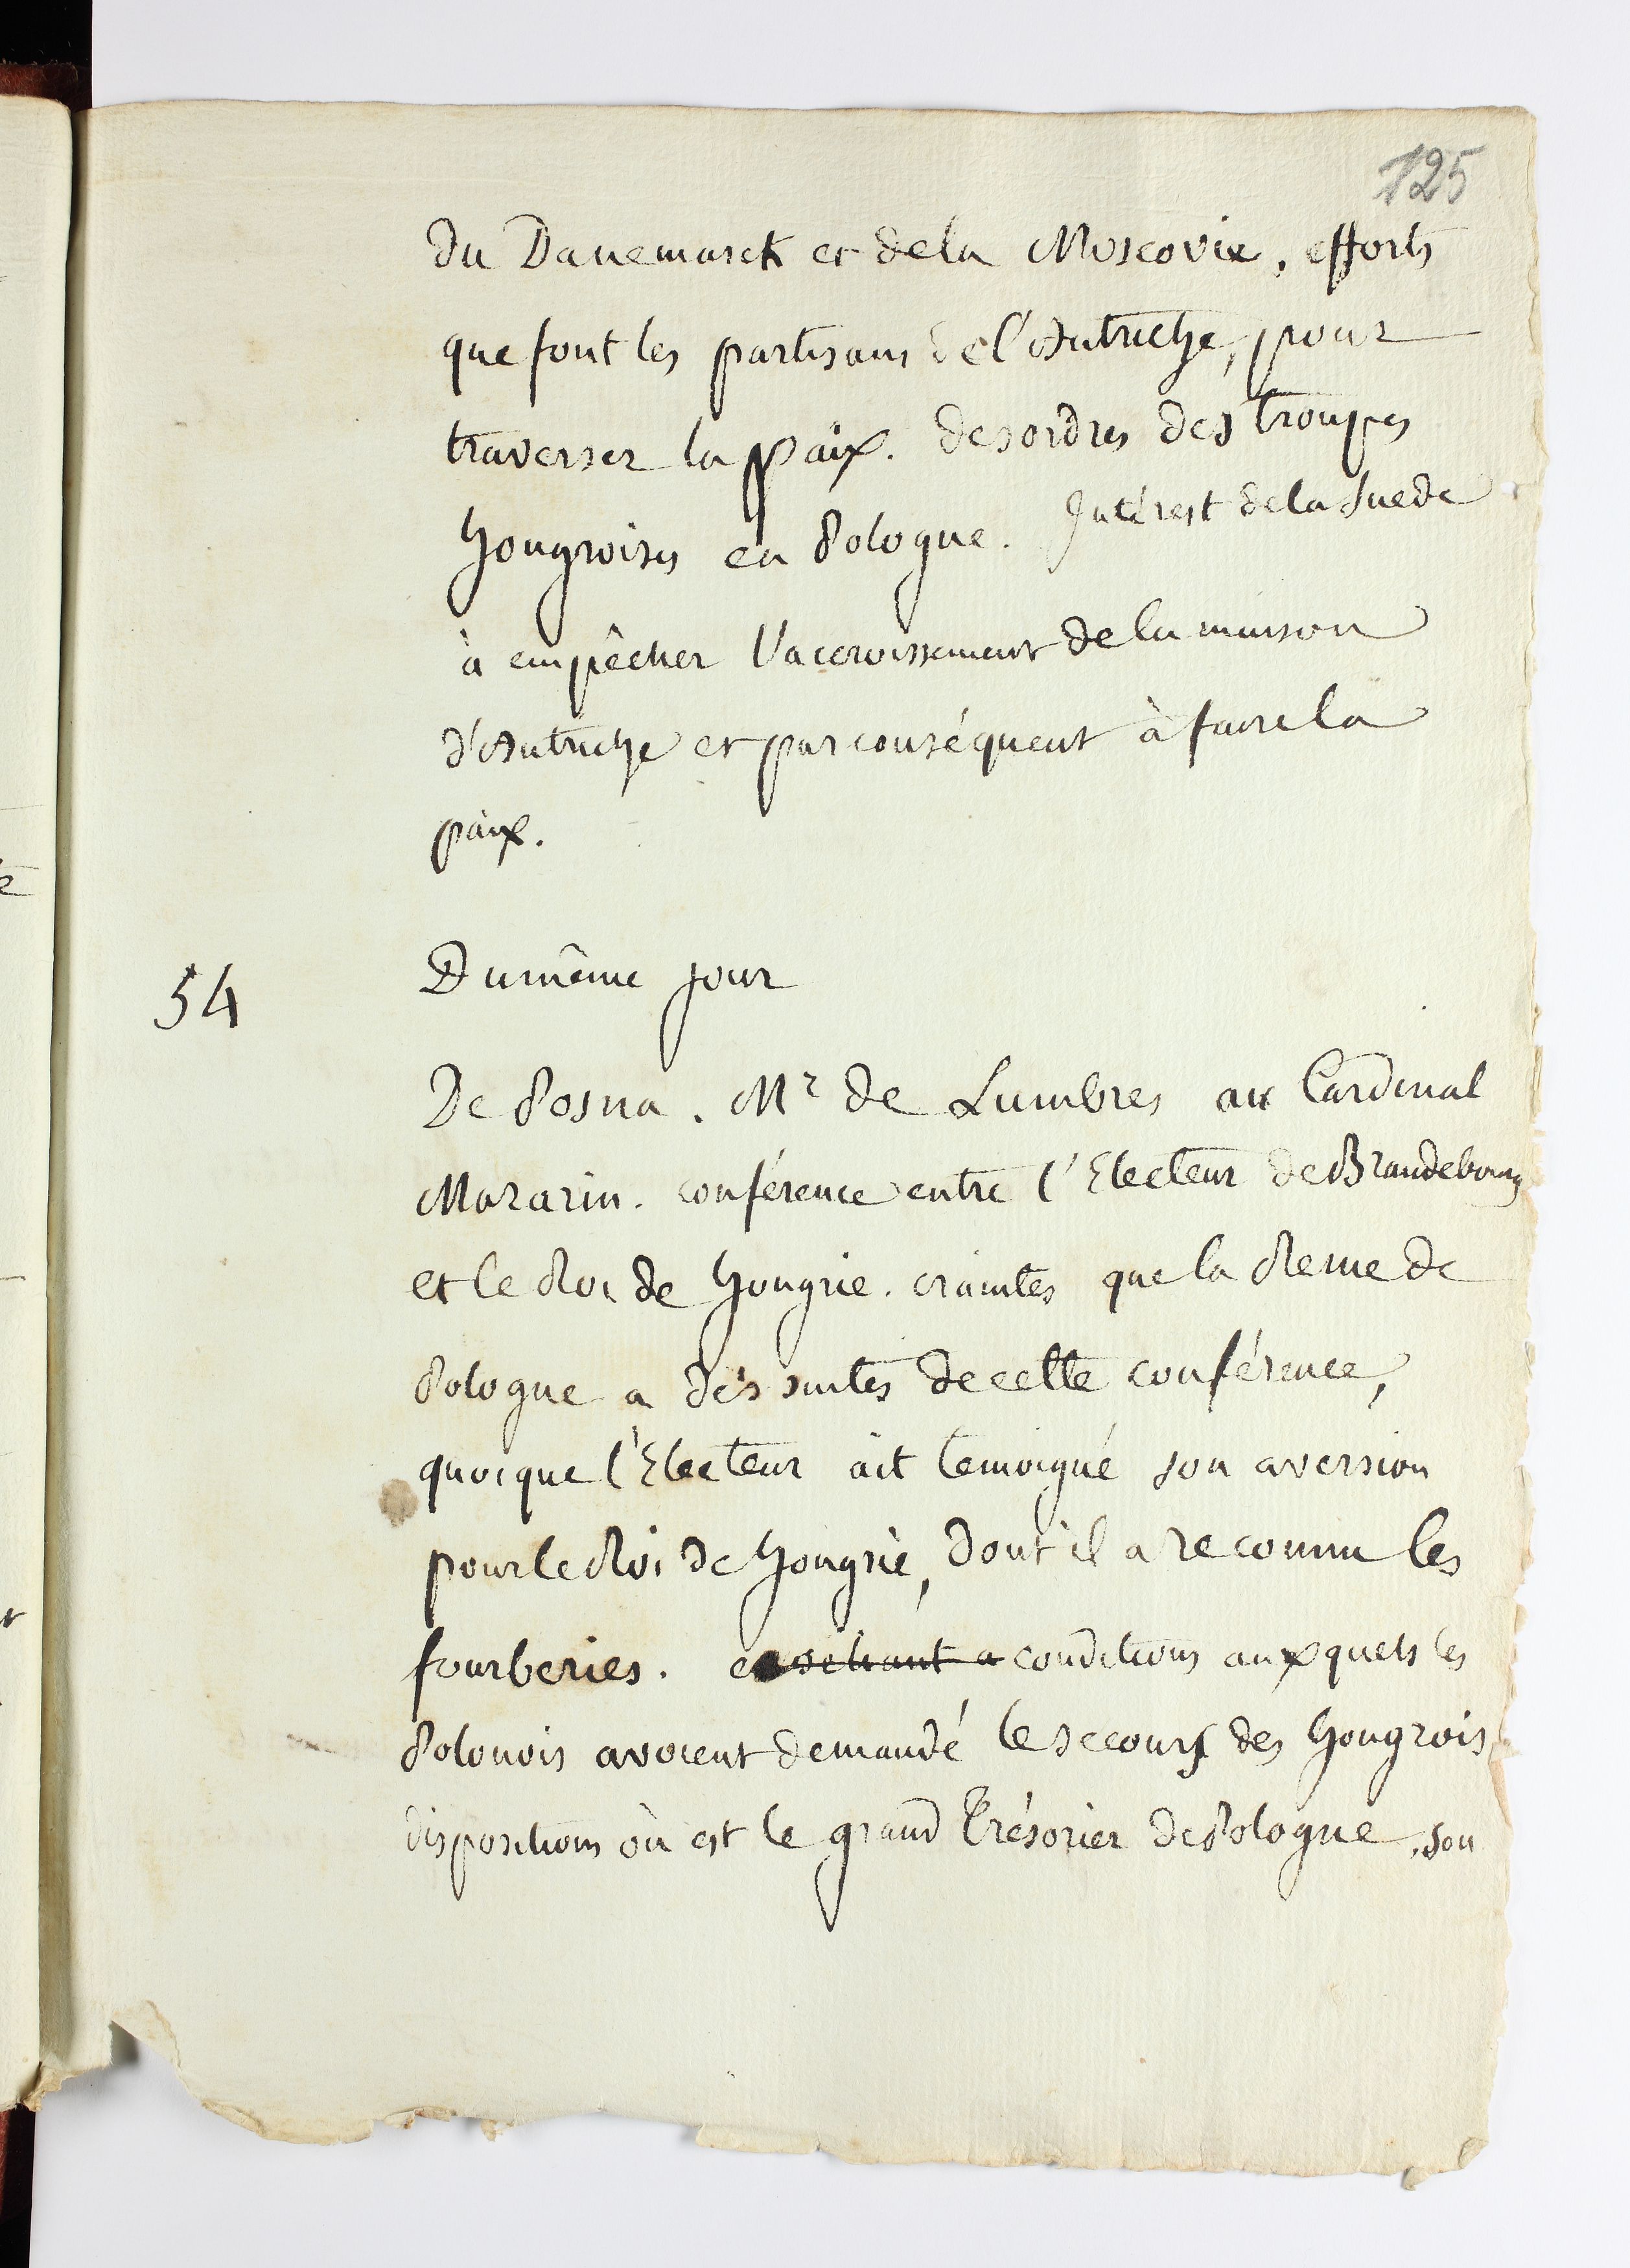 125
du Danemarck et de la Moscovie, efforts
que font les partisans de l'Autriche, pour
traverser la paix. desordres des troupes
hongroises en Pologne. Intérest de la Suede
à empêcher l'accroissement de la maison
d'Autriche et par conséquent à faire la
paix.
54
Du même jour
De Posna. Mr de Lumbres au Cardinal
Mazarin. conférence entre l'Electeur de Brandebourg
et le Roi de hongrie. craintes que la Reine de
Pologne a des suites de cette conférence,
quoique l'Electeur ait temoigné son aversion
pour le Roi de hongrie, dont il a reconnu les
fourberies. conditions auxquels les
Polonois avoient demandé le secours des hongrois
dispositions où est le grand Trésorier de Pologne, son